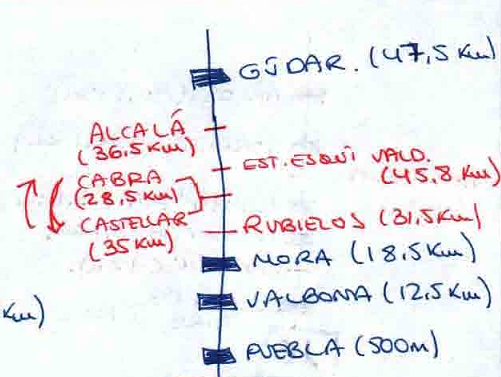 GÚDAR. (47,5 Km)
ALCALÁ
(36,5 Km)
EST. ESQUI VALD.
(45,8 Km)
CABRA
(28,5 Km)
CASTELLAR
(35 Km)
RUBIELOS (31,5 Km)
MORA (18,5 Km)
VALBONA (12,5 Km)
Km)
PUEBLA (500m)